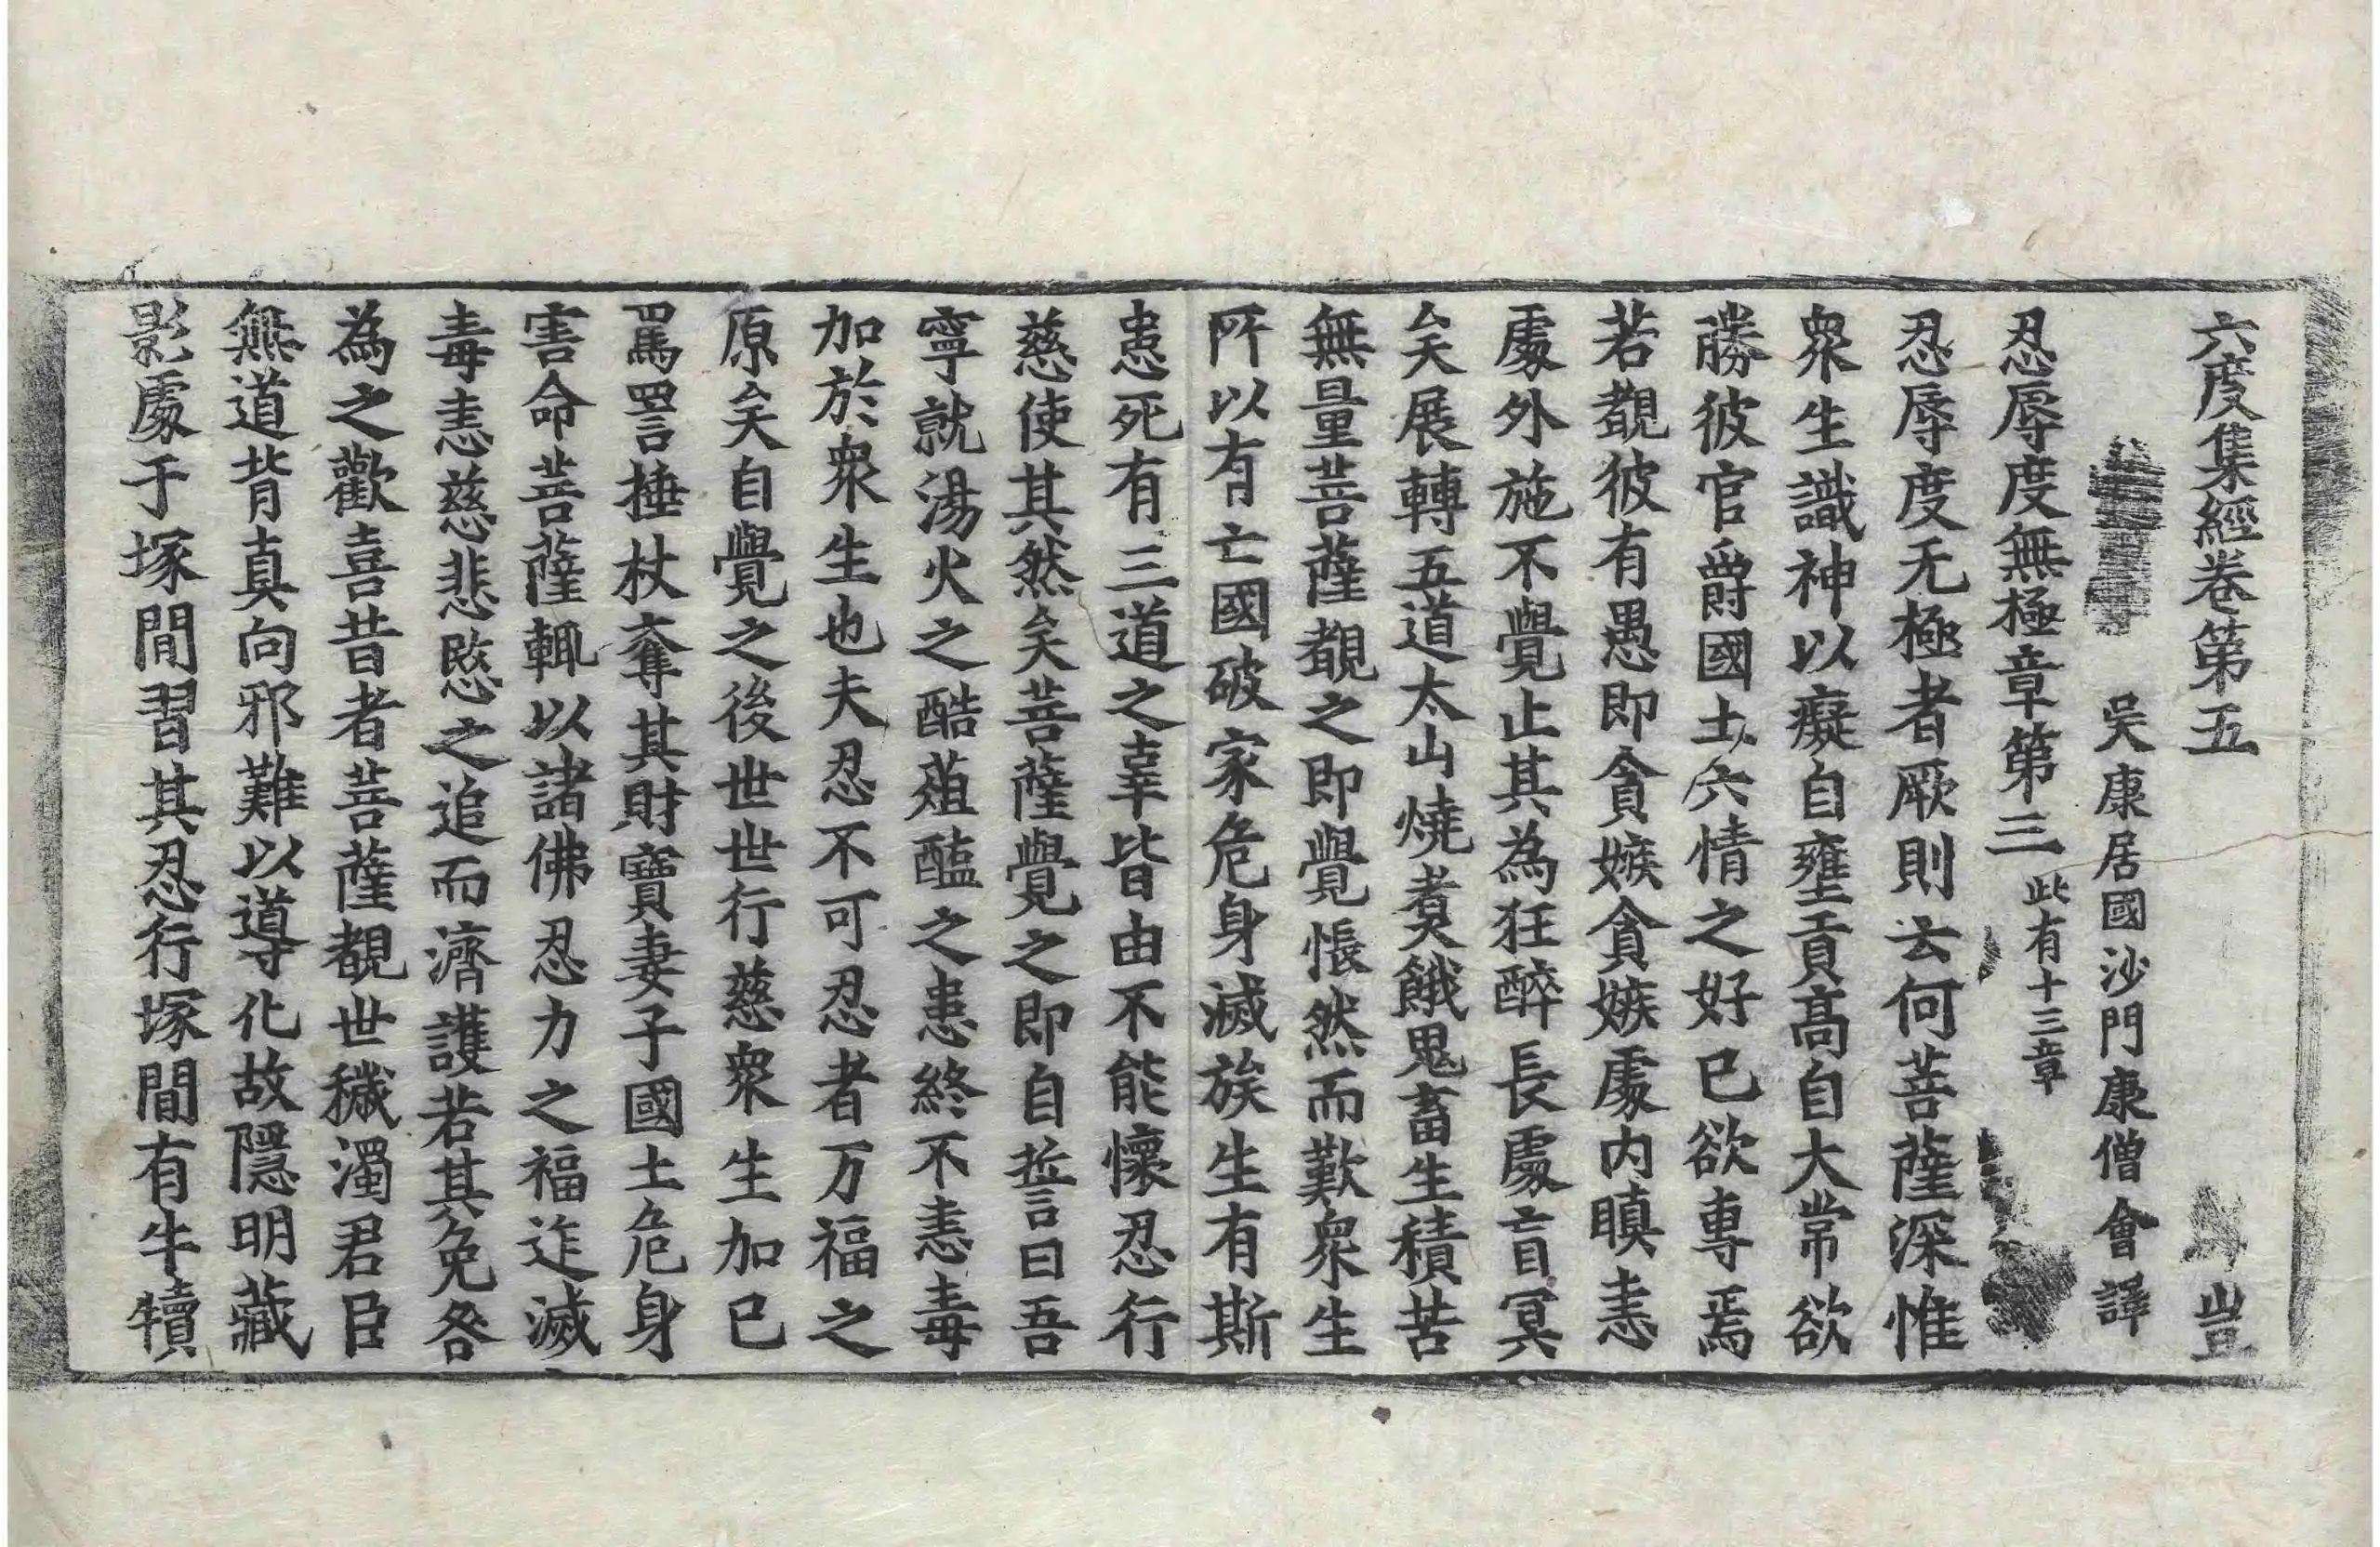 六度集經卷第五 豈
吳康居國沙門康僧會譯
忍辱度無極章第三 此有十三章
忍辱度无極者厥則云何菩薩深惟
衆生識神以癡自壅貢高自大常欲
勝彼官爵國土六情之好己欲專焉
若覩彼有愚即貪嫉貪嫉處內瞋恚
處外施不覺止其為狂醉長處盲冥
矣展轉五道太山燒煑餓鬼畜生積苦
無量菩薩覩之即覺悵然而歎衆生
所以有亡國破家危身滅族生有斯
患死有三道之辜皆由不能懷忍行
慈使其然矣菩薩覺之即自誓曰吾
寧就湯火之酷菹醢之患終不恚毒
加於衆生也夫忍不可忍者万福之
原矣自覺之後世世行慈衆生加己
罵詈捶杖奪其財寶妻子國土危身
害命菩薩輒以諸佛忍力之福迮滅
毒恚慈悲愍之追而濟護若其免咎
為之歡喜昔者菩薩覩世穢濁君臣
無道背真向邪難以導化故隱明藏
影處于塚間習其忍行塚間有牛犢